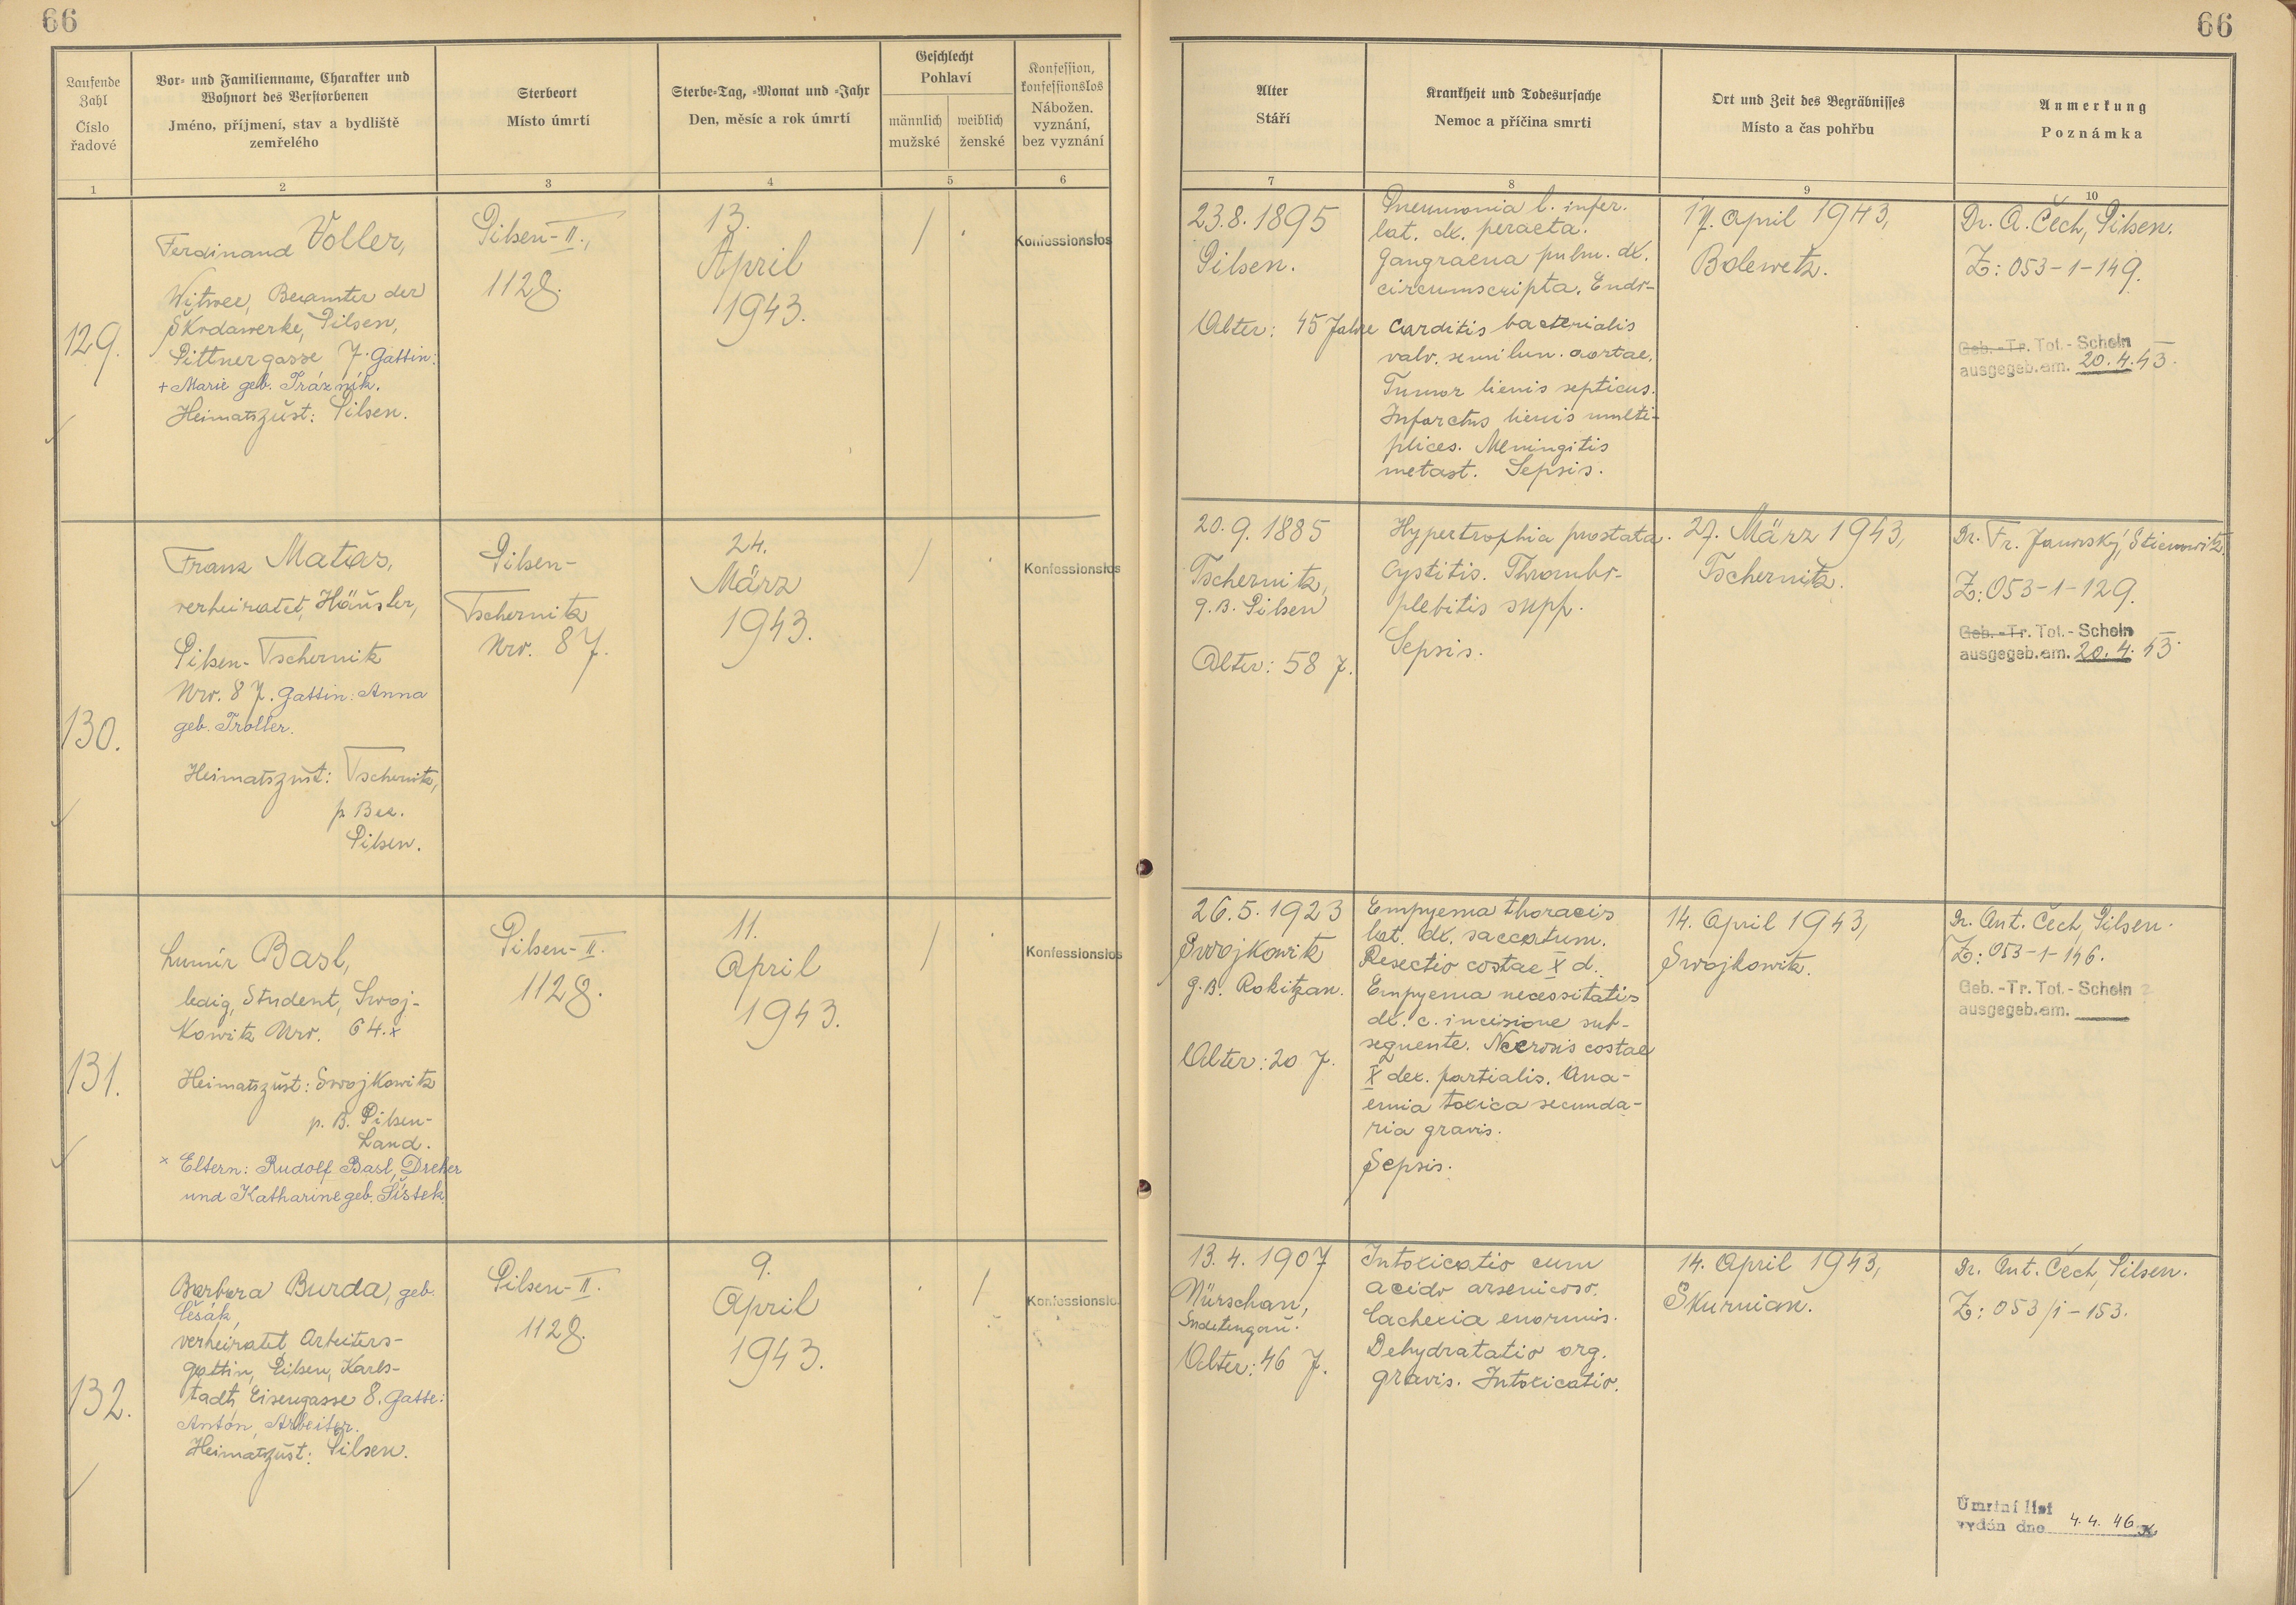 66
66
Laufende
Zahl
Číslo
řadové
Vor- und Familienname, Charakter und
Wohnort des Verstorbenen
Jméno, příjmení, stav a bydliště
zemřelého
Sterbeort
Místo úmrtí
Sterbe-Tag, -Monat und -Jahr
Den, měsíc a rok úmrtí
Geschlecht
Pohlaví
männlich
mužské
weiblich
ženské
Konfession,
konfessionslos
Nábožen.
vyznání,
bez vyznání
Alter
Stáří
Krankheit und Todesursache
Nemoc a příčina smrti
Ort und Zeit des Begräbnisses
Místo a čas pohřbu
Anmerkung
Poznámka
1
2
3
4
5
6
7
8
9
10
129.
Ferdinand Voller,
Witwer, Beamter der
Škodawerke, Pilsen,
Pittnergasse 7. Gattin:
+ Marie geb. Prázník.
Heimatszust: Pilsen.
Pilsen-II.,
1128.
13.
April
1943.
/
Konfessionslos
23.8.1895
Pilsen.
Alter: 45 Jahre
Pneumonia l. infer.
lat. dx. peracta.
Gangraena pulm. dx.
circumscripta. Endo-
carditis bacterialis
valv. semilun. aortae.
Tumor lienis septicus.
Infarctus lienis multi-
plices. Meningitis
metast. Sepsis.
17. April 1943,
Bolewetz.
Dr. A. Čech, Pilsen.
Z: 053-1-149.
Geb.-Tr. Tot.-Schein
ausgegeb.am. 20.4.43.
130.
Franz Matas,
verheiratet, Häusler,
Pilsen-Tschernitz
Nro. 87. Gattin: Anna
geb. Troller.
Heimatszust: Tschernitz,
p. Bez.
Pilsen.
Pilsen-
Tschernitz
Nro. 87.
24.
März
1943.
/
Konfessionslos
20.9.1885
Tschernitz,
g.B. Pilsen
Alter: 58 J.
Hypertrophia prostata.
Cystitis. Thrombo-
plebitis supp.
Sepsis.
27. März 1943,
Tschernitz.
Dr. Fr. Janovský, Stienowitz.
Z: 053-1-129.
Geb.-Tr. Tot.-Schein
ausgegeb.am. 20.4.43
131.
Lumír Basl,
ledig, Student, Swoj-
kowitz Nro. 64.x
Heimatszust: Swojkowitz
p. B. Pilsen-
Land.
x Eltern: Rudolf Basl, Dreher
und Katharine geb. Šístek
Pilsen-II.
1128.
11.
April
1943.
/
Konfessionslos
26.5.1923
Swojkowitz
g.B. Rokitzan.
Alter: 20 J.
Empyema thoracis
lat. dx. saccatum.
Resectio costae X d.
Empyema necessitatis
dx. c. incisione sub-
sequente. Necrosis costae
X dex. partialis. Ana-
emia toxica secunda-
ria gravis.
Sepsis.
14. April 1943,
Swojkowitz.
Dr. Ant. Čech, Pilsen.
Z: 053-1-146.
Geb.-Tr. Tot.-Schein
ausgegeb.am.
132.
Barbara Burda, geb.
Lešák,
verheiratet, Arbeiters-
gattin, Pilsen, Karls-
stadt, Eisengasse 8. Gatte:
Anton, Arbeiter.
Heimatszust: Pilsen.
Pilsen-II.
1128.
9.
April
1943.
/
Konfessionslo
13.4.1907
Nürschan,
Sudetengau.
Alter: 46 J.
Intoxicatio cum
acido arsenicoso.
Cachexia enormis.
Dehydratatio org.
gravis. Intoxicatio.
14. April 1943,
Skurnian.
Dr. Ant. Čech, Pilsen.
Z: 053/i-153.
Úmrtní list
vydán dne 4.4.46